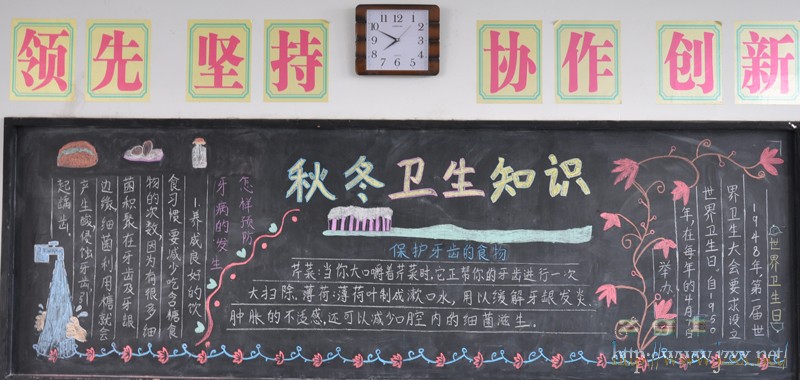 领先 坚持 协作 创新
秋冬卫生知识
保护牙齿的食物
芹菜:当你大口嚼着芹菜时,它正帮你的牙齿进行一次
大扫除.薄荷:薄荷叶制成漱口水,用以缓解牙龈发炎
肿胀的不适感,还可以减少口腔内的细菌滋生.
世界卫生日
1948年,第一届世
界卫生大会要求设立
世界卫生日。自1950
年,在每年的4月7日
举办
怎样预防
牙病的发生
1.养成良好的饮
食习惯,要减少吃含糖食
物的次数,因为有很多细
菌积聚在牙齿及牙龈
边缘,细菌利用糖就会
产生酸,侵蚀牙齿,引
起龋齿